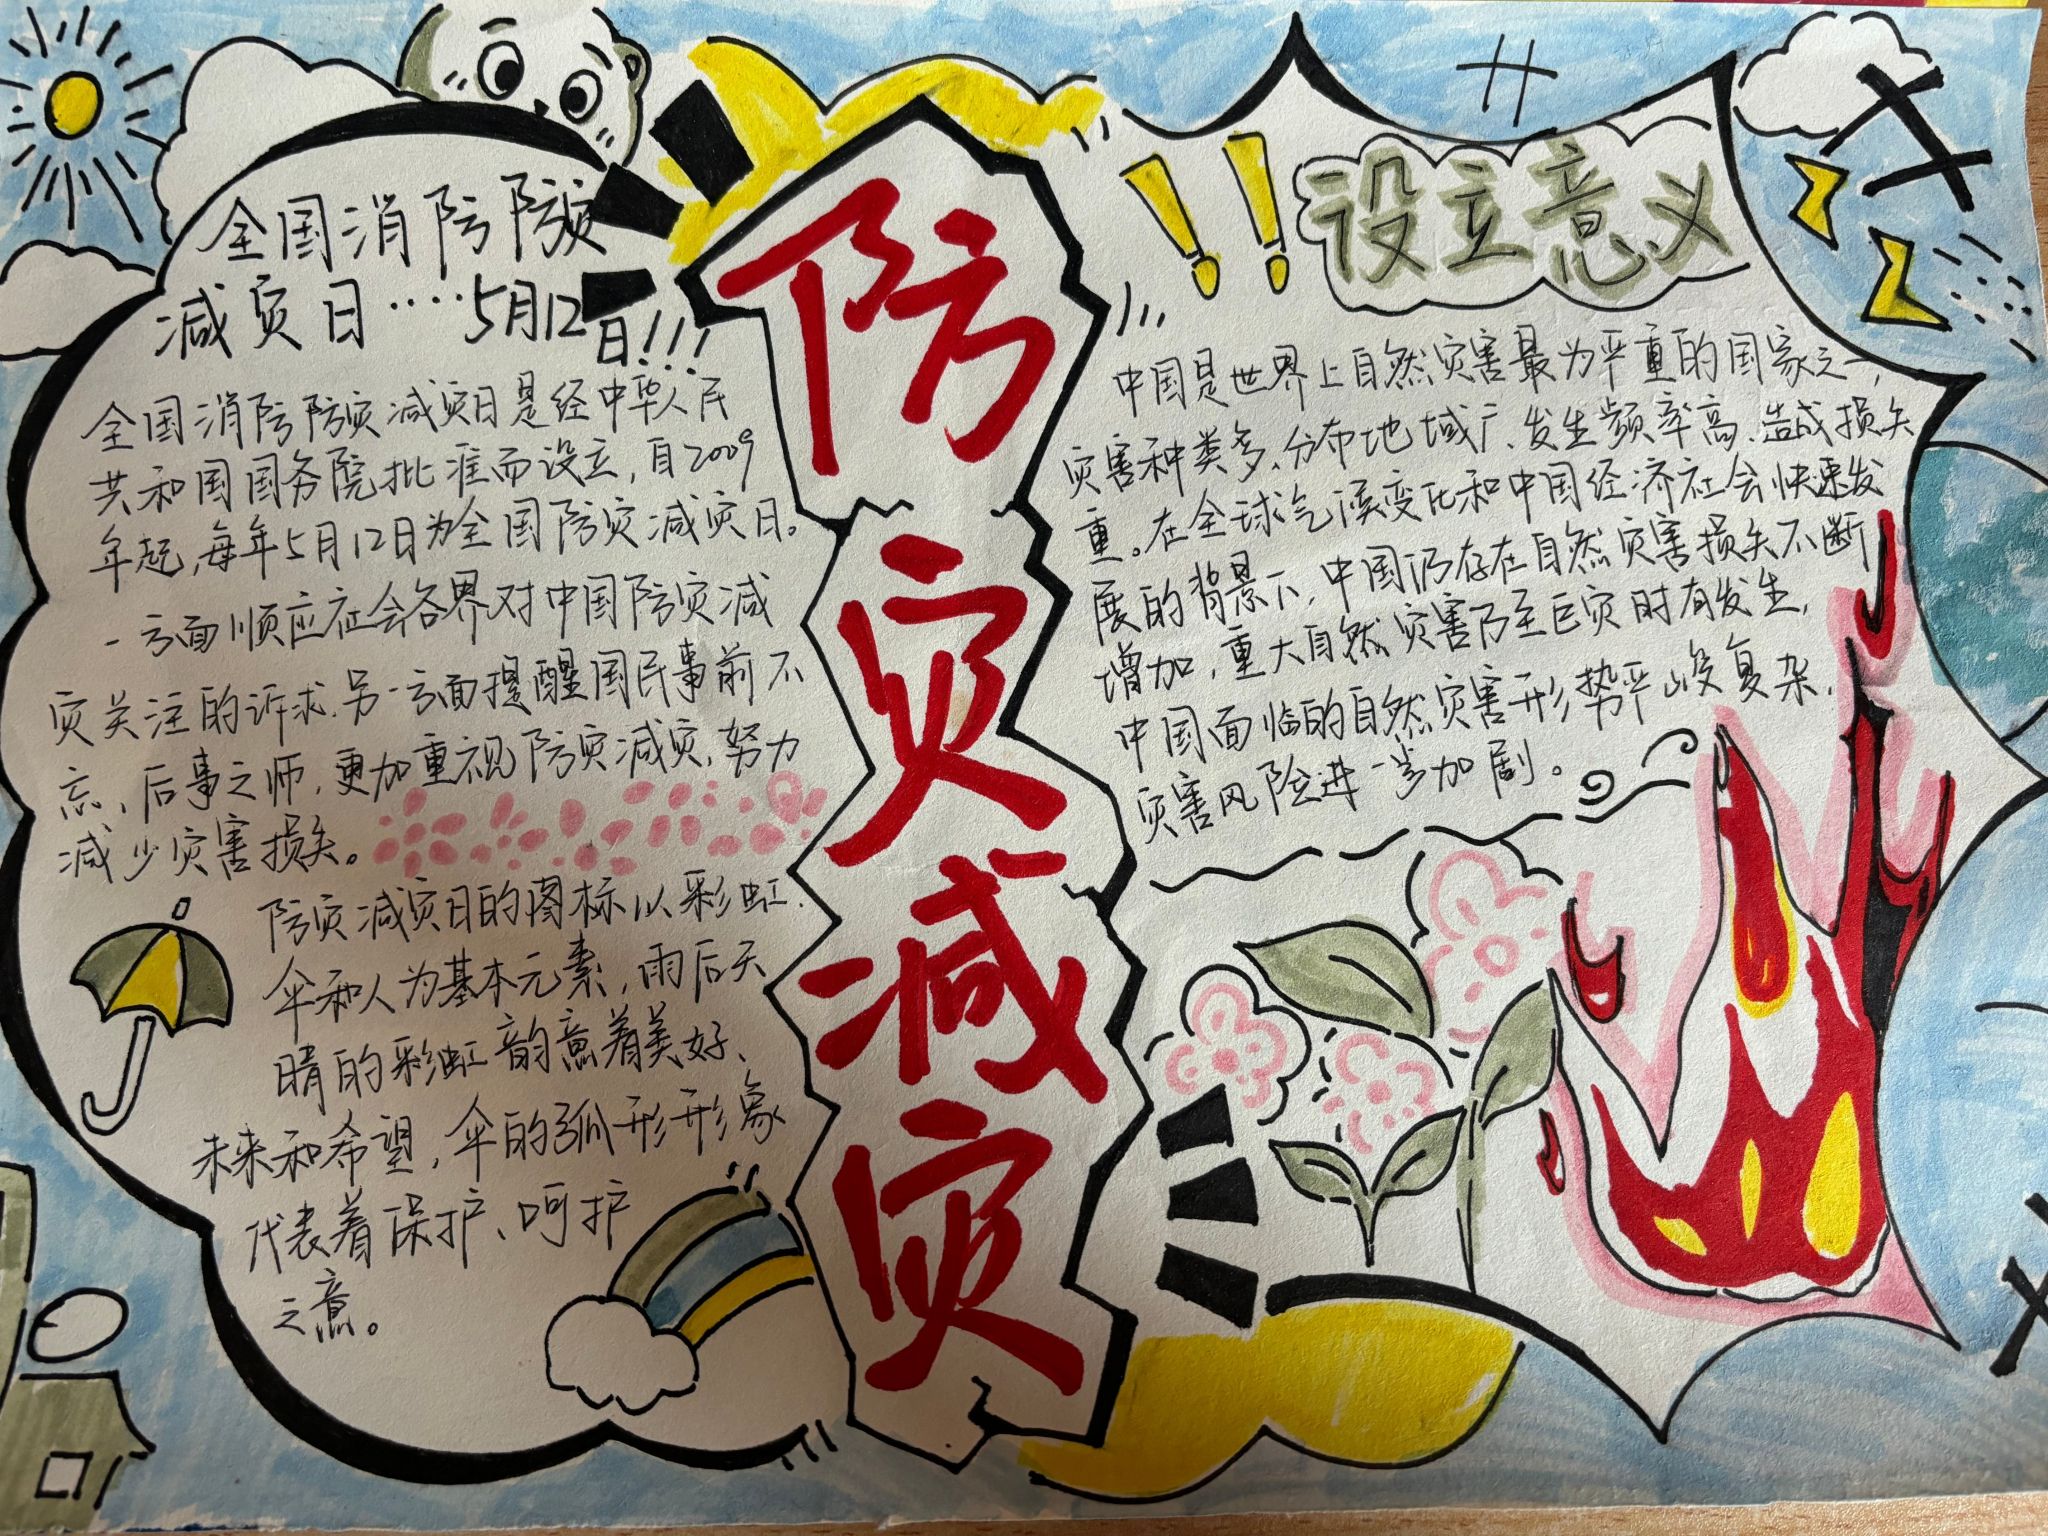 全国消防防灾
减灾日····5月12
日!!!
全国消防防灾减灾日是经中华人民
共和国国务院批准而设立,自2009
年起,每年5月12日为全国防灾减灾日。
一方面顺应社会各界对中国防灾减
灾关注的诉求,另一方面提醒国民事前不
忘、后事之师,更加重视防灾减灾,努力
减少灾害损失。
防灾减灾日的图标以彩虹、
伞和人为基本元素,雨后天
晴的彩虹韵意着美好、
未来和希望,伞的弧形形象
代表着保护、呵护
之意。
防
灾
减
灾
!!
设立意义
中国是世界上自然灾害最为严重的国家之一,
灾害种类多、分布地域广、发生频率高、造成损失
重。在全球气候变化和中国经济社会快速发
展的背景下,中国仍存在自然灾害损失不断
增加,重大自然灾害乃至巨灾时有发生,
中国面临的自然灾害形势严峻复杂,
灾害风险进一步加剧。